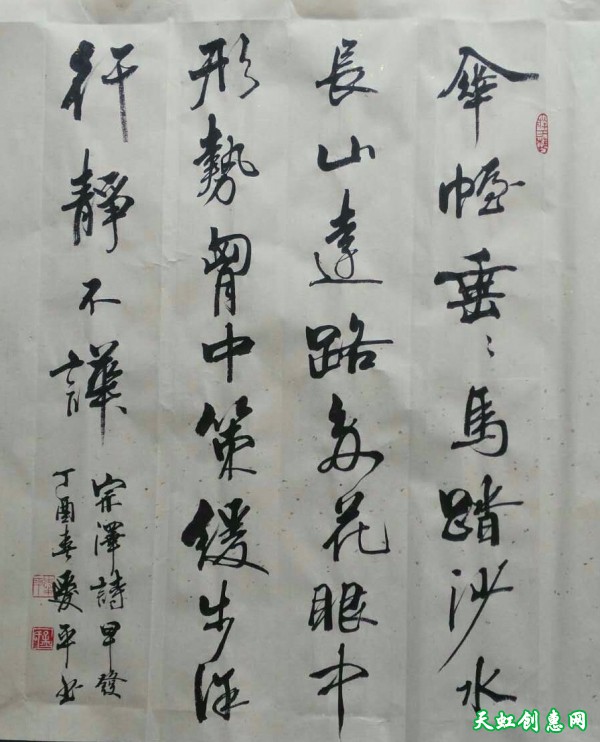 傘幄垂〻馬踏沙水
長山遠路多花眼中
形勢胷中策緩步徐
行靜不譁
宗澤詩早發
丁酉春愛平书
天虹创惠网